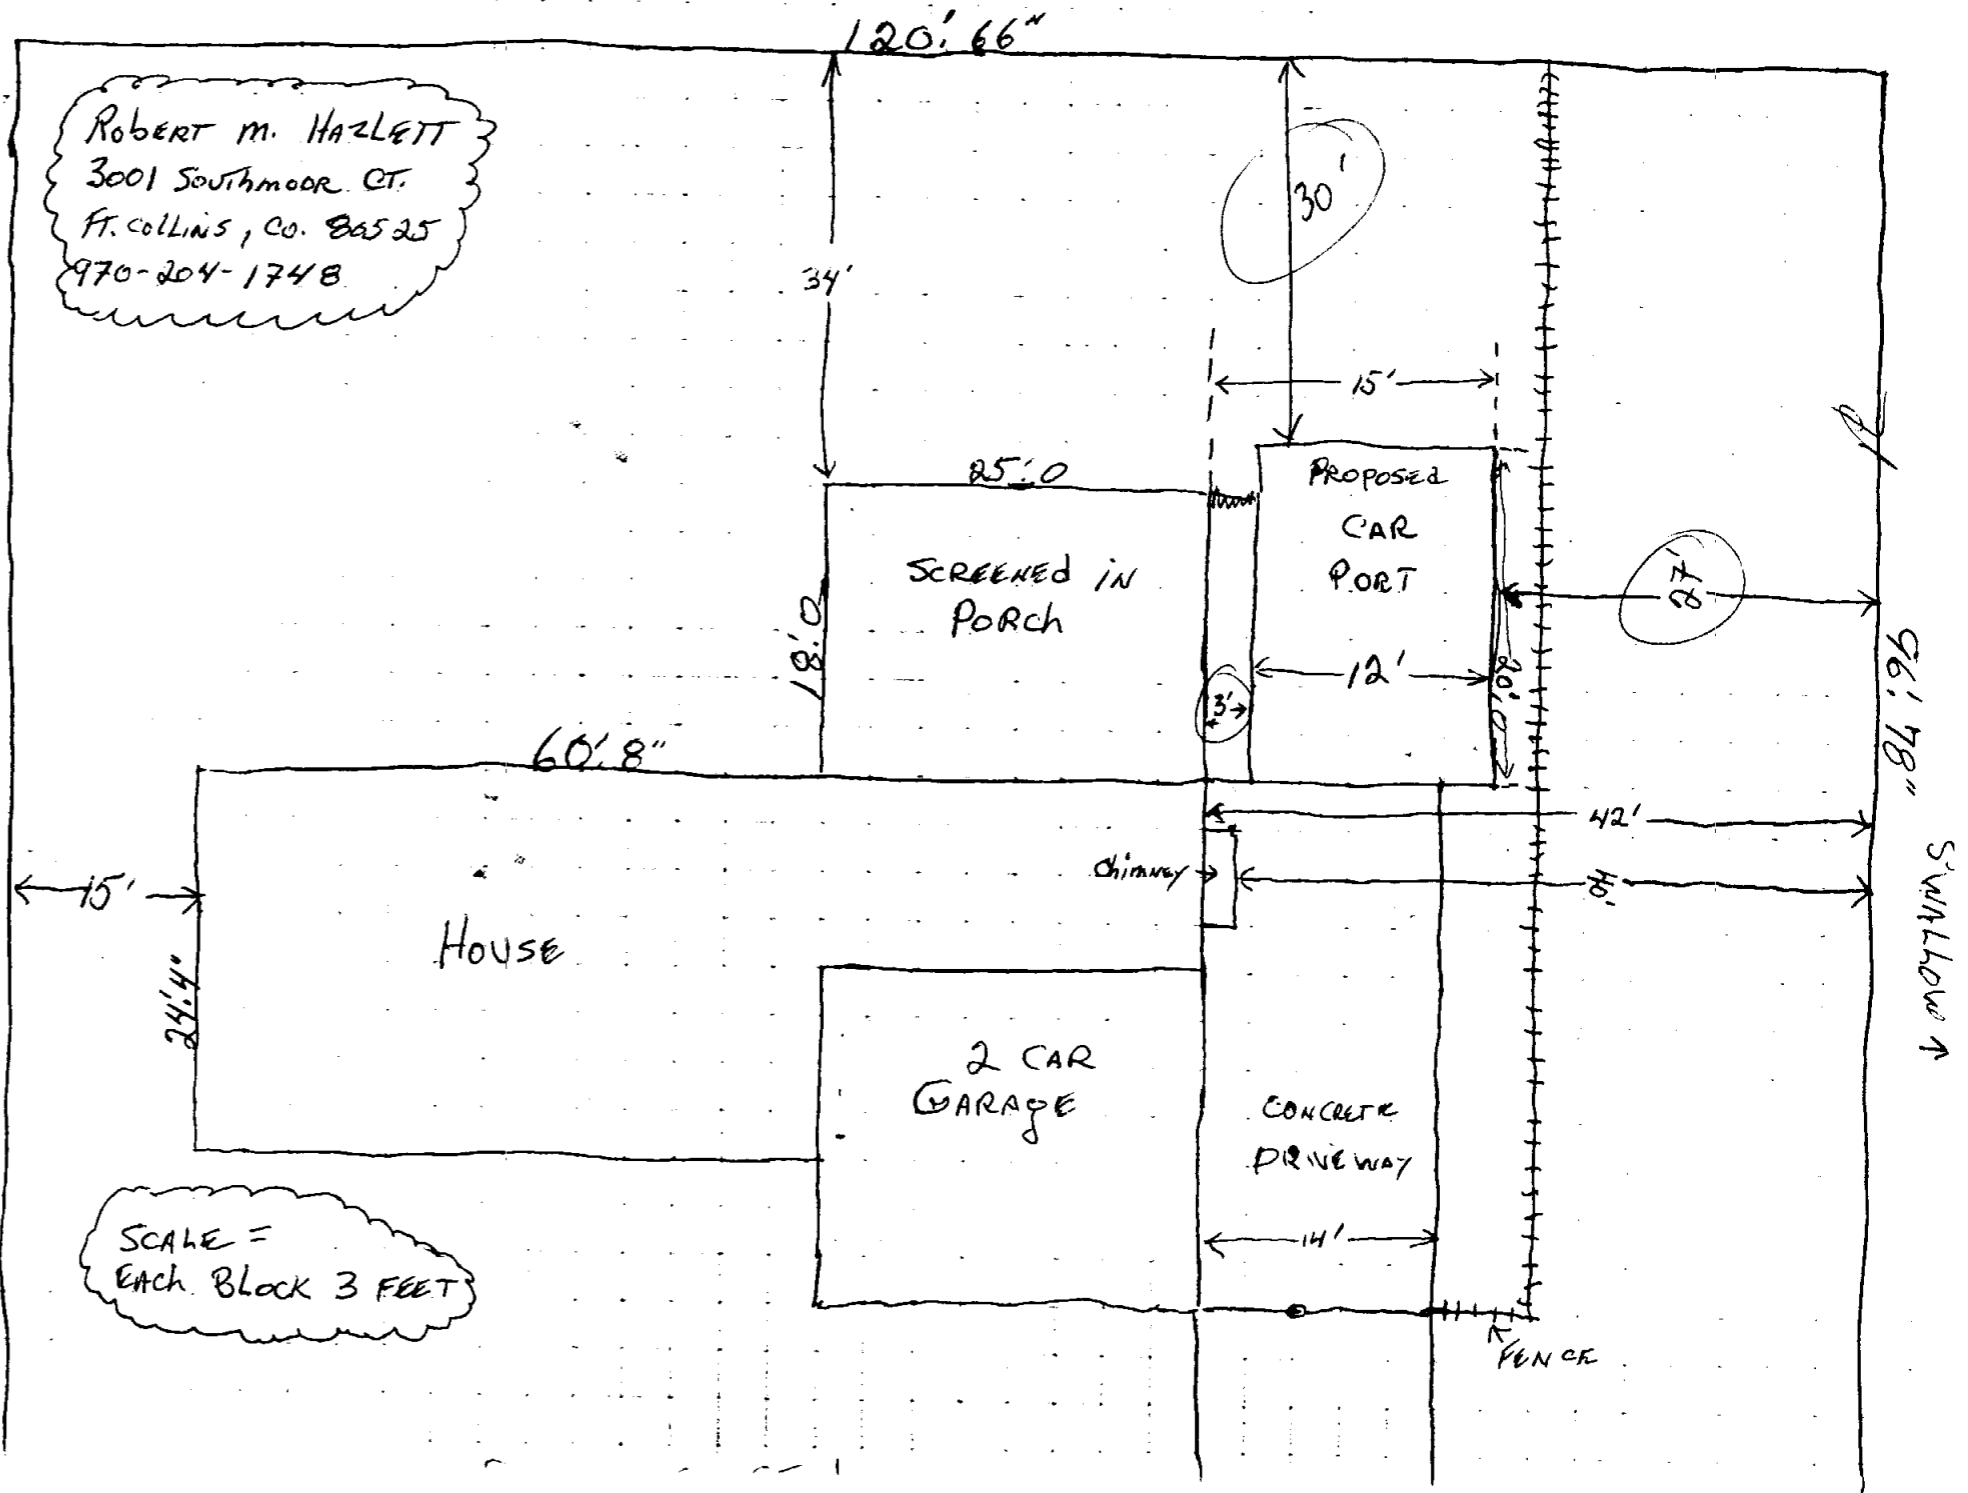 120.' 66"
ROBERT M. HAZLETT
3001 SOUTHMOOR CT.
FT. COLLINS, CO. 80525
970-204-1748
30'
34'
15'
25'.0
PROPOSED
CAR
PORT
SCREENED IN
PORCH
27'
18'.0
12'
20'.0
3'
96.' 78"
60'.8"
42'
Chimney
40'
SWALLOW ↑
15'
HOUSE
24'.4"
2 CAR
GARAGE
CONCRETE
DRIVEWAY
14'
SCALE =
EACH BLOCK 3 FEET
FENCE